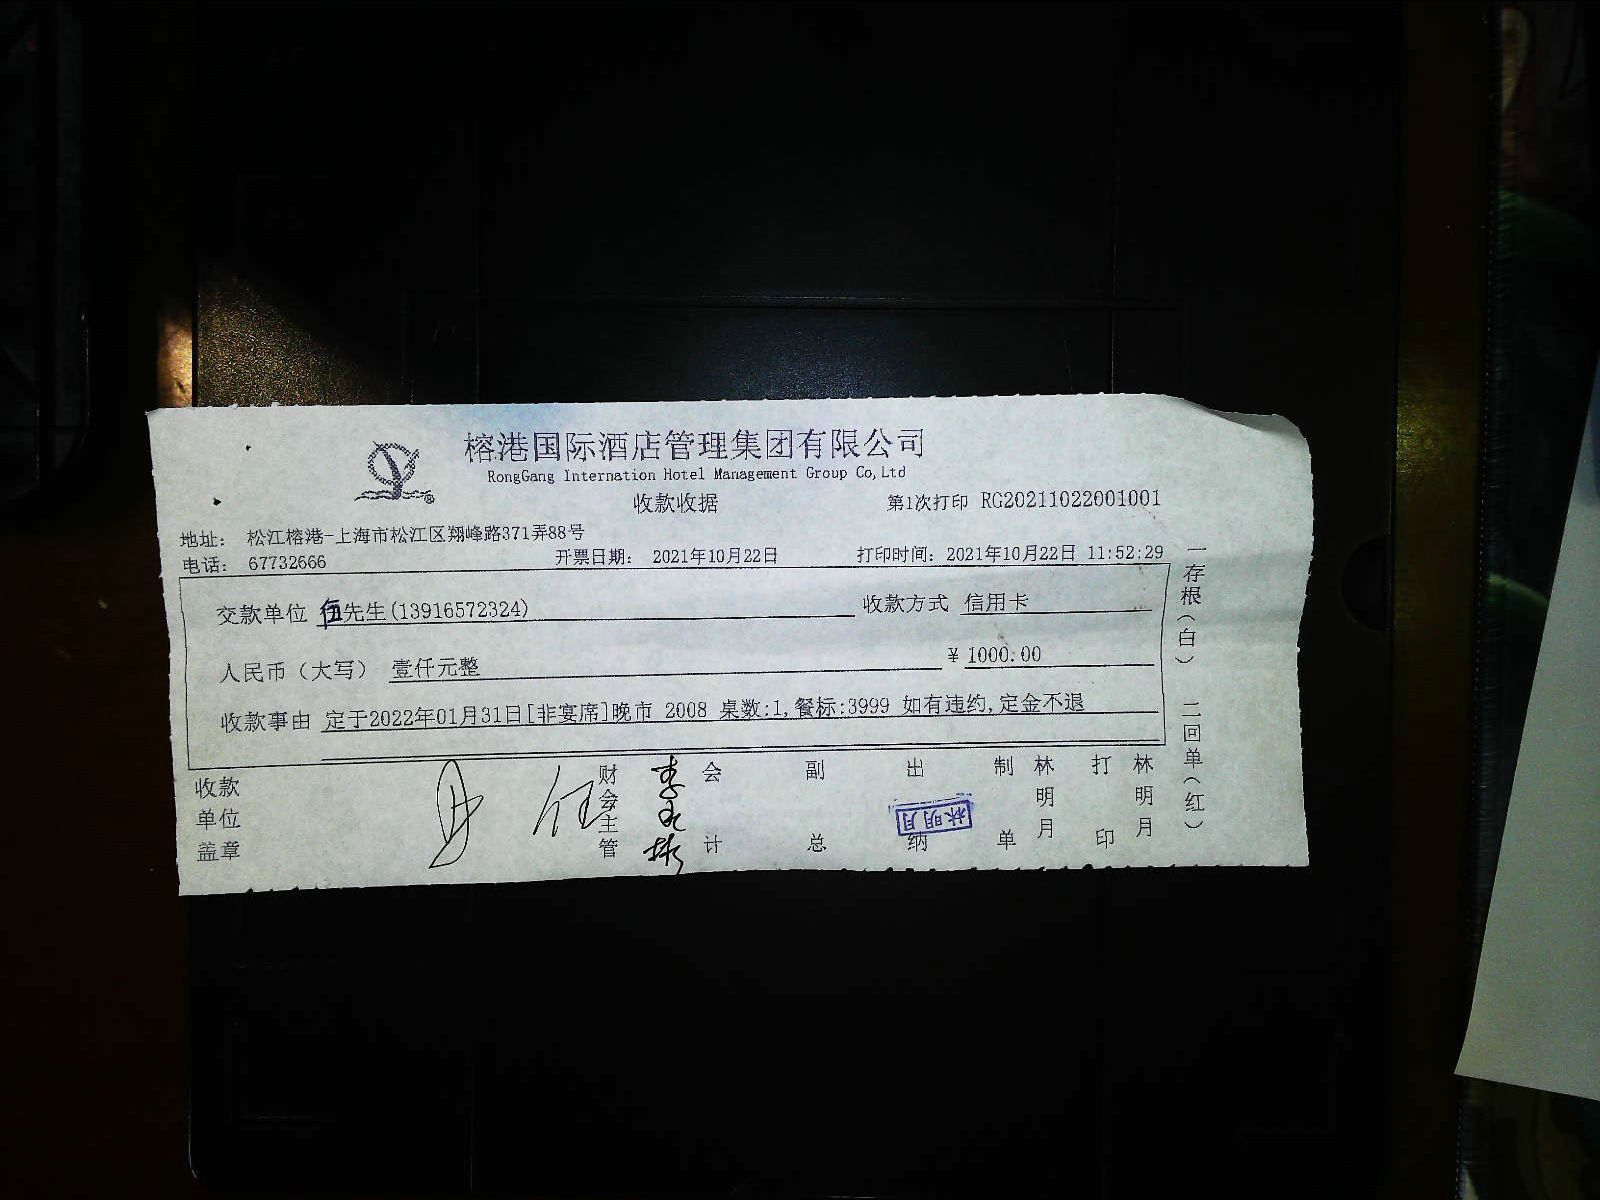 榕港国际酒店管理集团有限公司
RongGang Internation Hotel Management Group Co,Ltd
收款收据
第1次打印 RG20211022001001
地址： 松江榕港-上海市松江区翔峰路371弄88号
电话： 67732666
开票日期： 2021年10月22日
打印时间： 2021年10月22日 11:52:29
交款单位 伍先生(13916572324)
收款方式 信用卡
人民币（大写） 壹仟元整
¥ 1000.00
收款事由 定于2022年01月31日[非宴席]晚市 2008 桌数:1,餐标:3999 如有违约,定金不退
收款单位盖章
财会主管
会计
副总
出纳
林明月
制单
林明月
打印
林明月
一存根（白） 二回单（红）